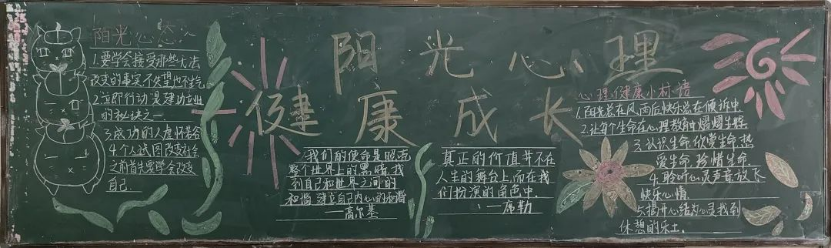 阳光心态
1.要学会接受那些无法
改变的事实不失望也不生气
2.立即行动是建功立业
的秘诀之一
3.成功的人
4.个人试图改变社会
之前首先要学会改变
自己
阳光心理
健康成长
我们的使命是照亮
整个世界上的黑暗,找
到自己和世界之间的
和谐建立自己内心的和谐
——高尔基
真正的价值并不在
人生的舞台上,而在我
们扮演的角色中.
——席勒
心理健康小村情
1.阳光总在风雨后快乐总在倾诉中
2.让每个生命在心理教育中熠熠生辉
3.认识生命,欣赏生命,热
爱生命,珍惜生命
4.聆听心灵声音放飞
快乐心情
5.揭开心结为心灵找到
休憩的乐土.